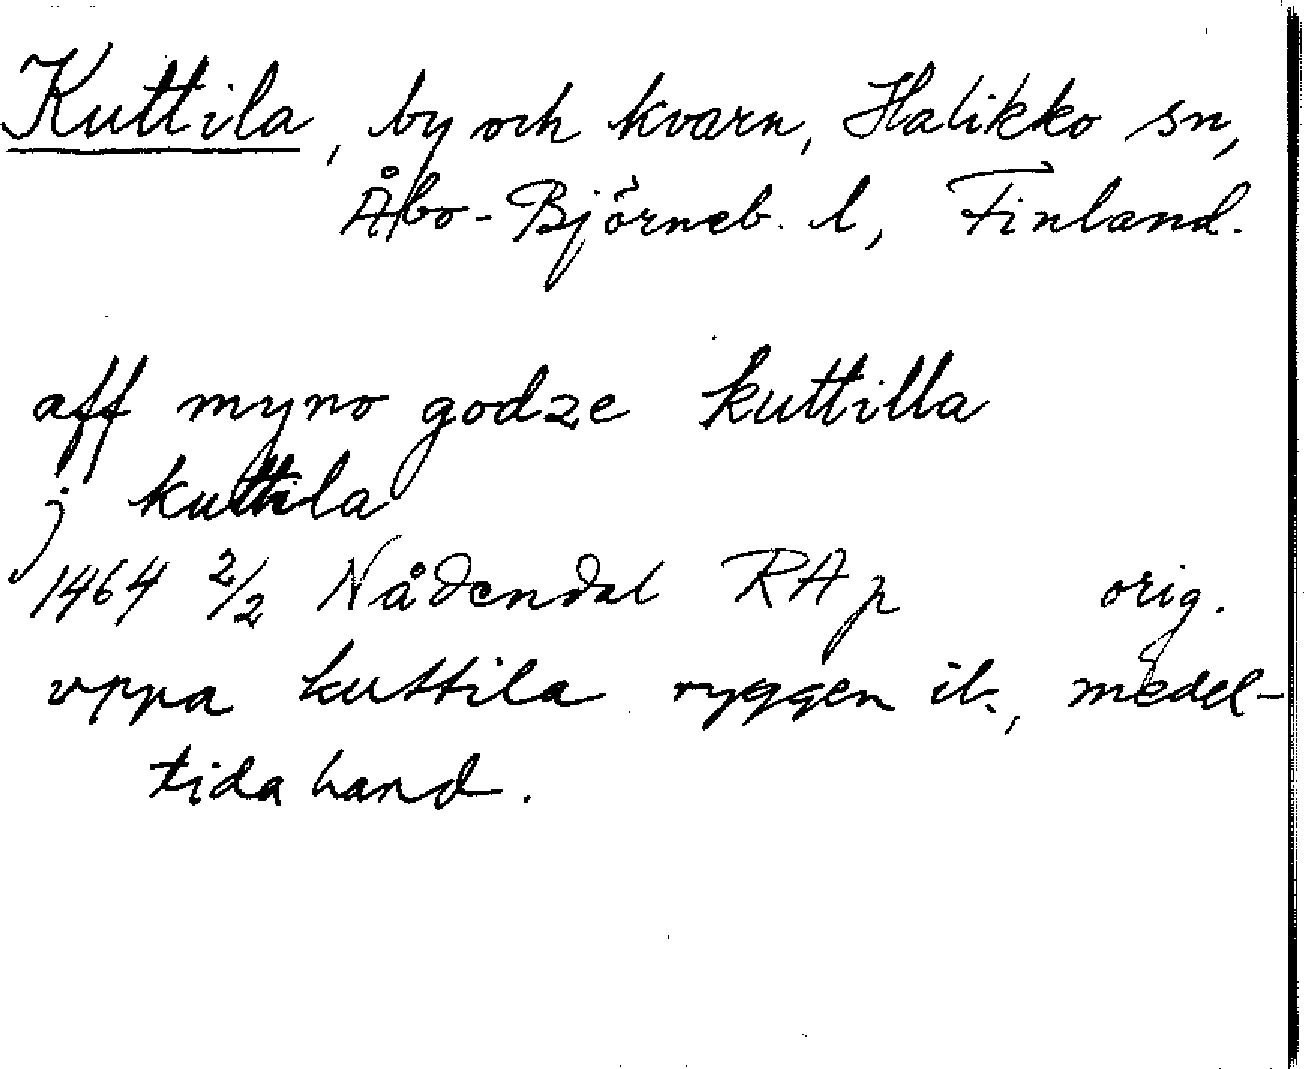 Kuttila, by och kvarn, Halikko sn,
Åbo-Björneb. l, Finland.
aff myno godze kuttilla
j kuttila
1464 2/2 Nådendal RAp orig.
vppa kuttila ryggen ib., medel-
tida hand.